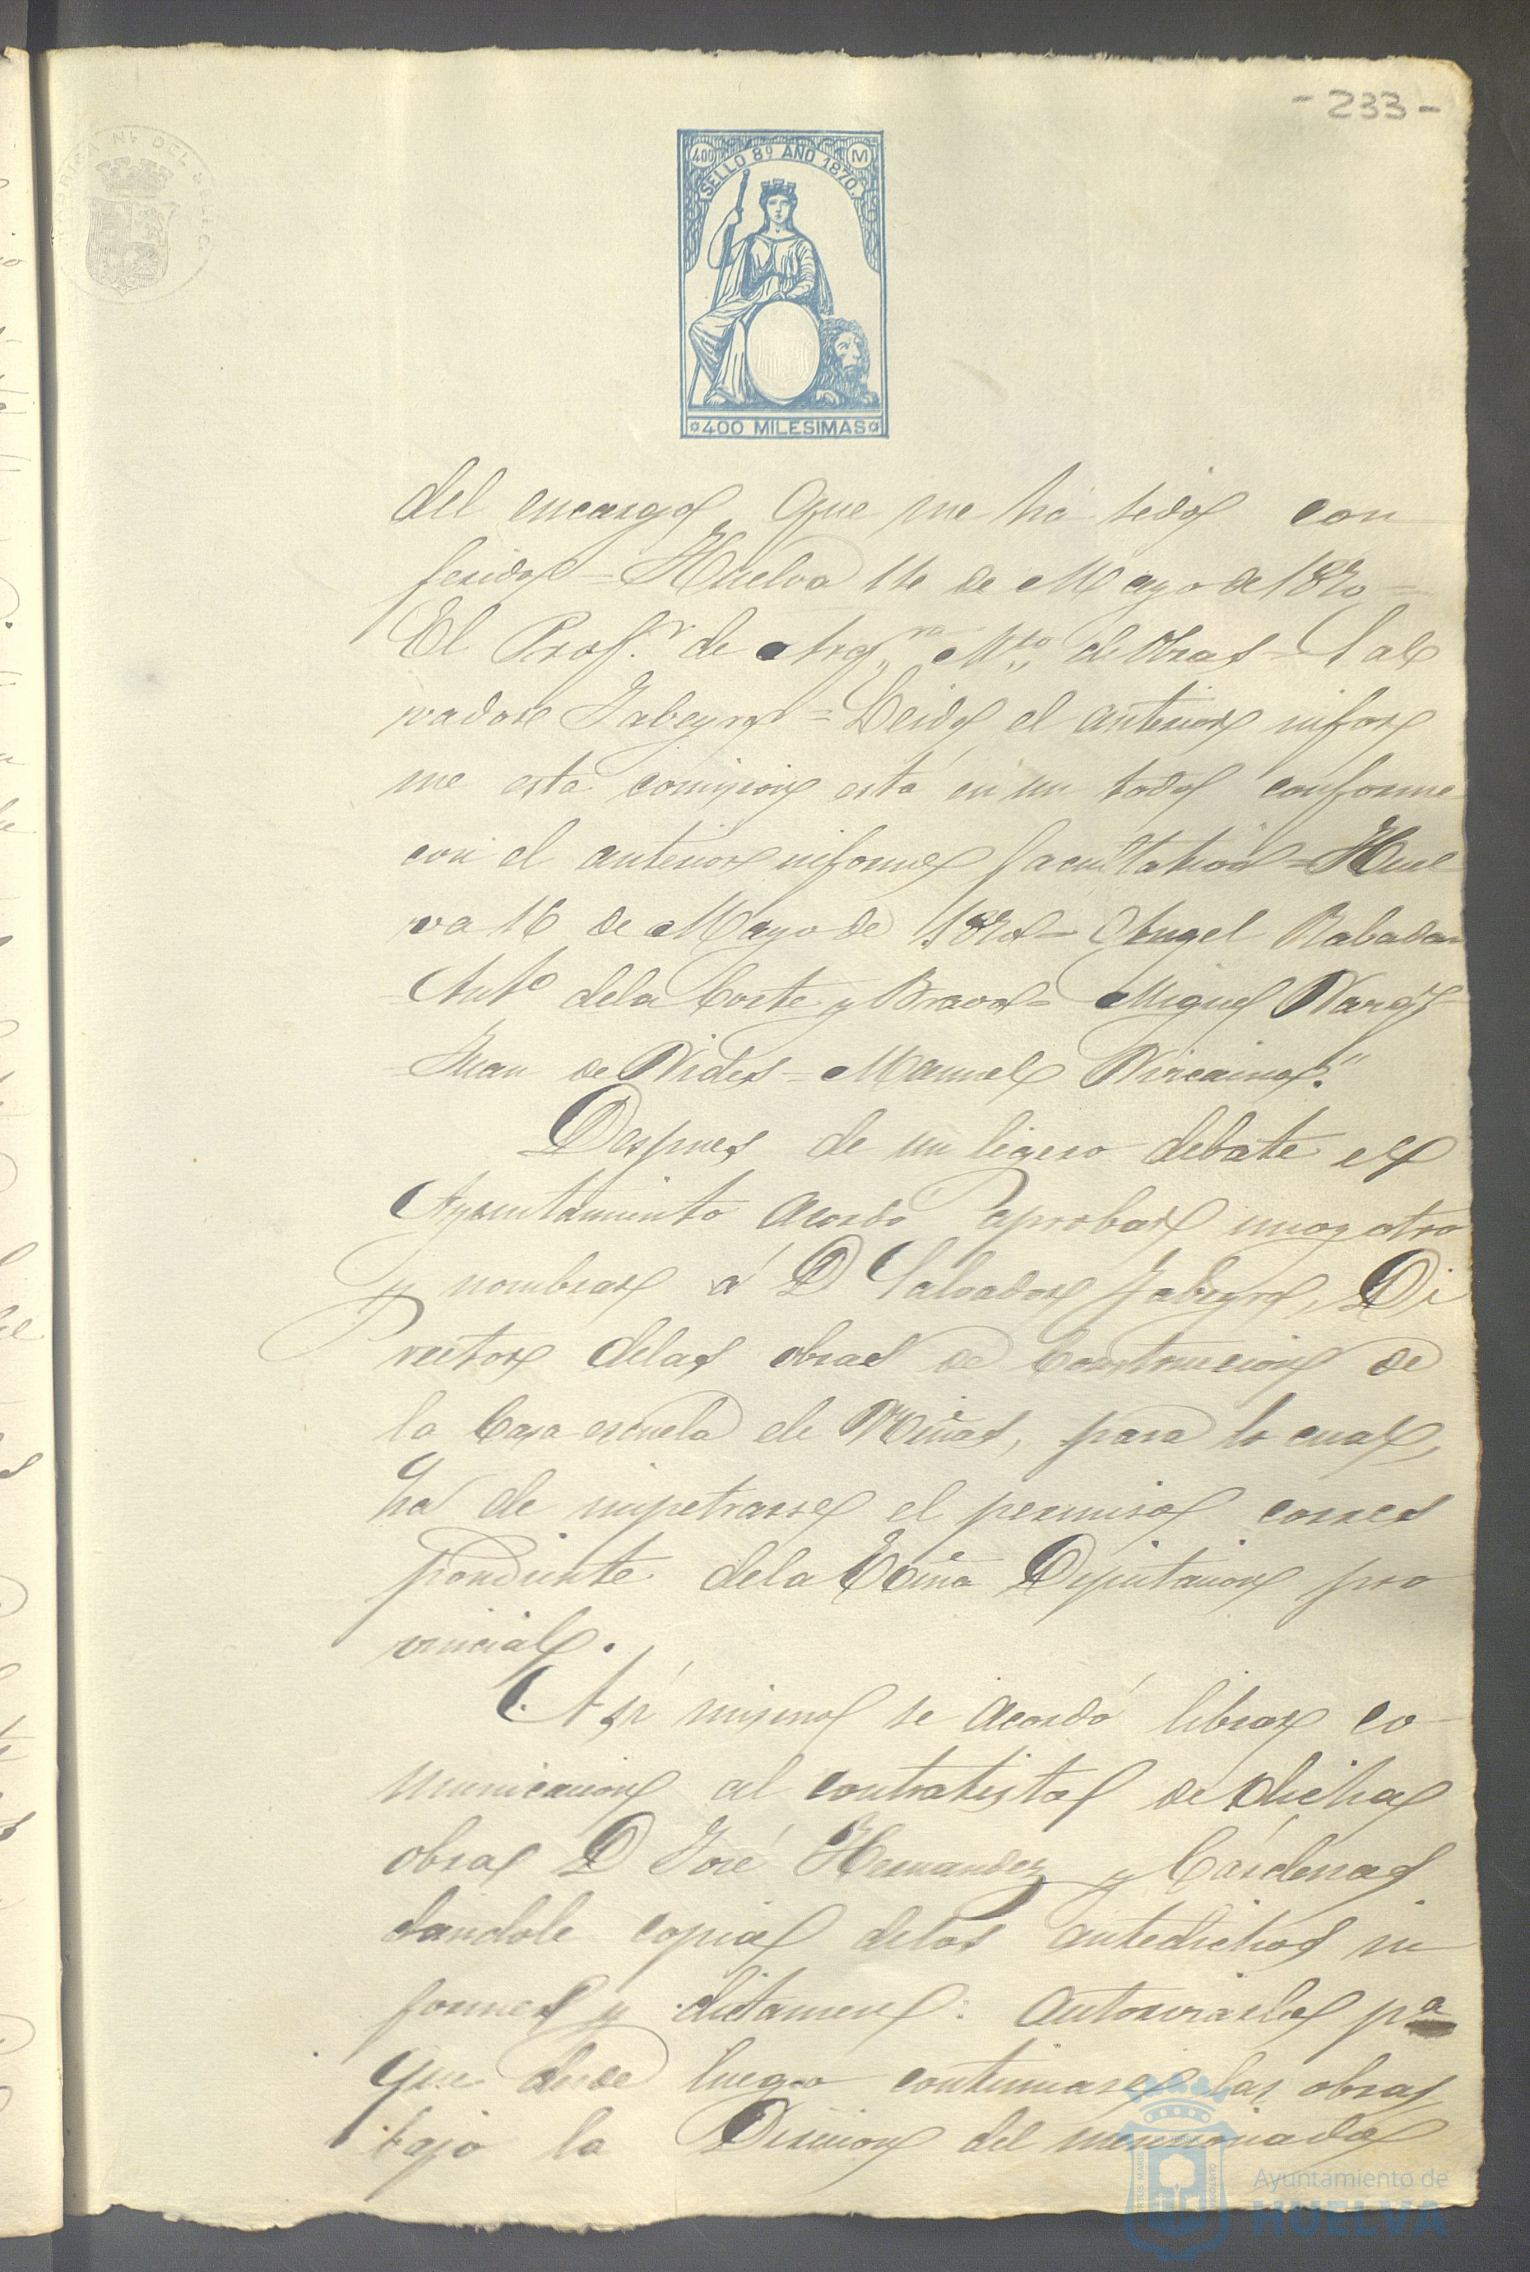 - 233 -
400 M
SELLO 8º AÑO 1870.
400 MILESIMAS
del encargo que me há sido con
ferido = Huelva 16 de Mayo de 1870 =
El Prof.r de Arq.ra Mtro de Obras = Sal
vador = Leido el anterior infor
me esta comision está en un todo conforme
con el anterior informe facultativo = Huel
va 16 de Mayo de 1870 = Angel Rabadan
= Antº dela Corte y Bravo = Miguel
= Juan de Vides = Manuel Vizcaino."
Despues de un ligero debate el
Ayuntamiento acordó aprobar uno y otro
y nombrar á D Salvador, Di
rector delas obras de Construccion de
la Casa escuela de Niñas, para lo cual,
ha de impetrarse el permiso corres
pondiente dela Excma Diputacion pro
vincial.
Asi mismo se acordó librar co-
municacion al contratista de dicha
obra D José Hernandez y Cárdenas
dandole copia delos antedichos in
formes y dictamen: autorizarlo pª
que desde luego continuase las obras
bajo la Direccion del mencionado
Ayuntamiento de
HUELVA